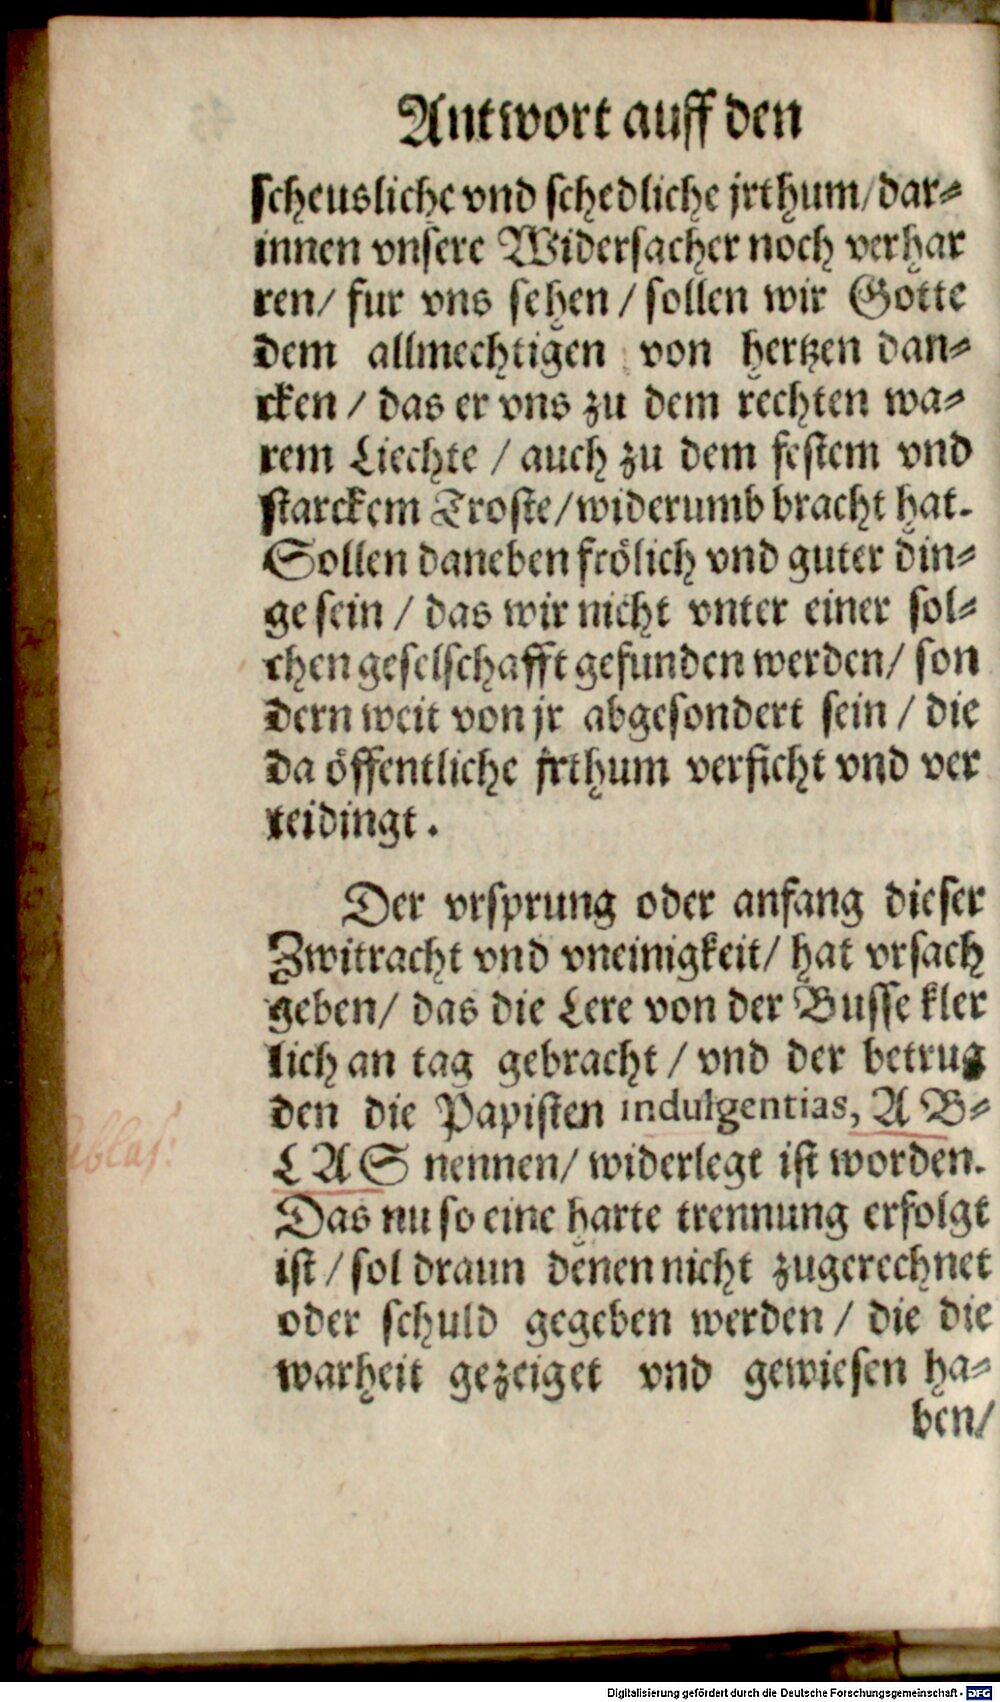 Antwort auff den
scheusliche vnd schedliche jrthum/ dar⸗
innen vnsere Widersacher noch verhar
ren/ fur vns sehen / sollen wir Gotte
dem allmechtigen von hertzen dan⸗
cken / das er vns zu dem rechten wa⸗
rem Liechte / auch zu dem festem vnd
starckem Troste/ widerumb bracht hat.
Sollen daneben frölich vnd guter din⸗
ge sein / das wir nicht vnter einer sol⸗
chen geselschafft gefunden werden/ son
dern weit von jr abgesondert sein / die
da öffentliche jrthum verficht vnd ver
teidingt .
Der vrsprung oder anfang dieser
Zwitracht vnd vneinigkeit/ hat vrsach
geben/ das die Lere von der Busse kler
lich an tag gebracht / vnd der betrug
den die Papisten indulgentias, A B⸗
L A S nennen/ widerlegt ist worden.
ablas:
Das nu so eine harte trennung erfolgt
ist / sol draun denen nicht zugerechnet
oder schuld gegeben werden / die die
warheit gezeiget vnd gewiesen ha⸗
ben/
Digitalisierung gefördert durch die Deutsche Forschungsgemeinschaft - DFG